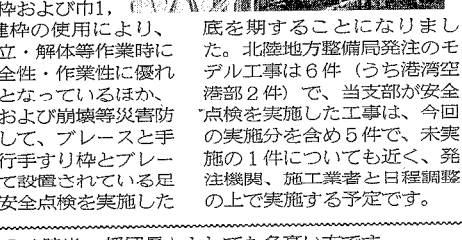 枠および巾1,
建枠の使用により、
立・解体等作業時に
全性・作業性に優れ
となっているほか、
および崩壊等災害防
して、ブレースと手
行手すり枠とブレー
て設置されている足
安全点検を実施した
底を期することになりまし
た。北陸地方整備局発注のモ
デル工事は6件（うち港湾空
港部2件）で、当支部が安全
点検を実施した工事は、今回
の実施分を含め5件で、未実
施の1件についても近く、発
注機関、施工業者と日程調整
の上で実施する予定です。